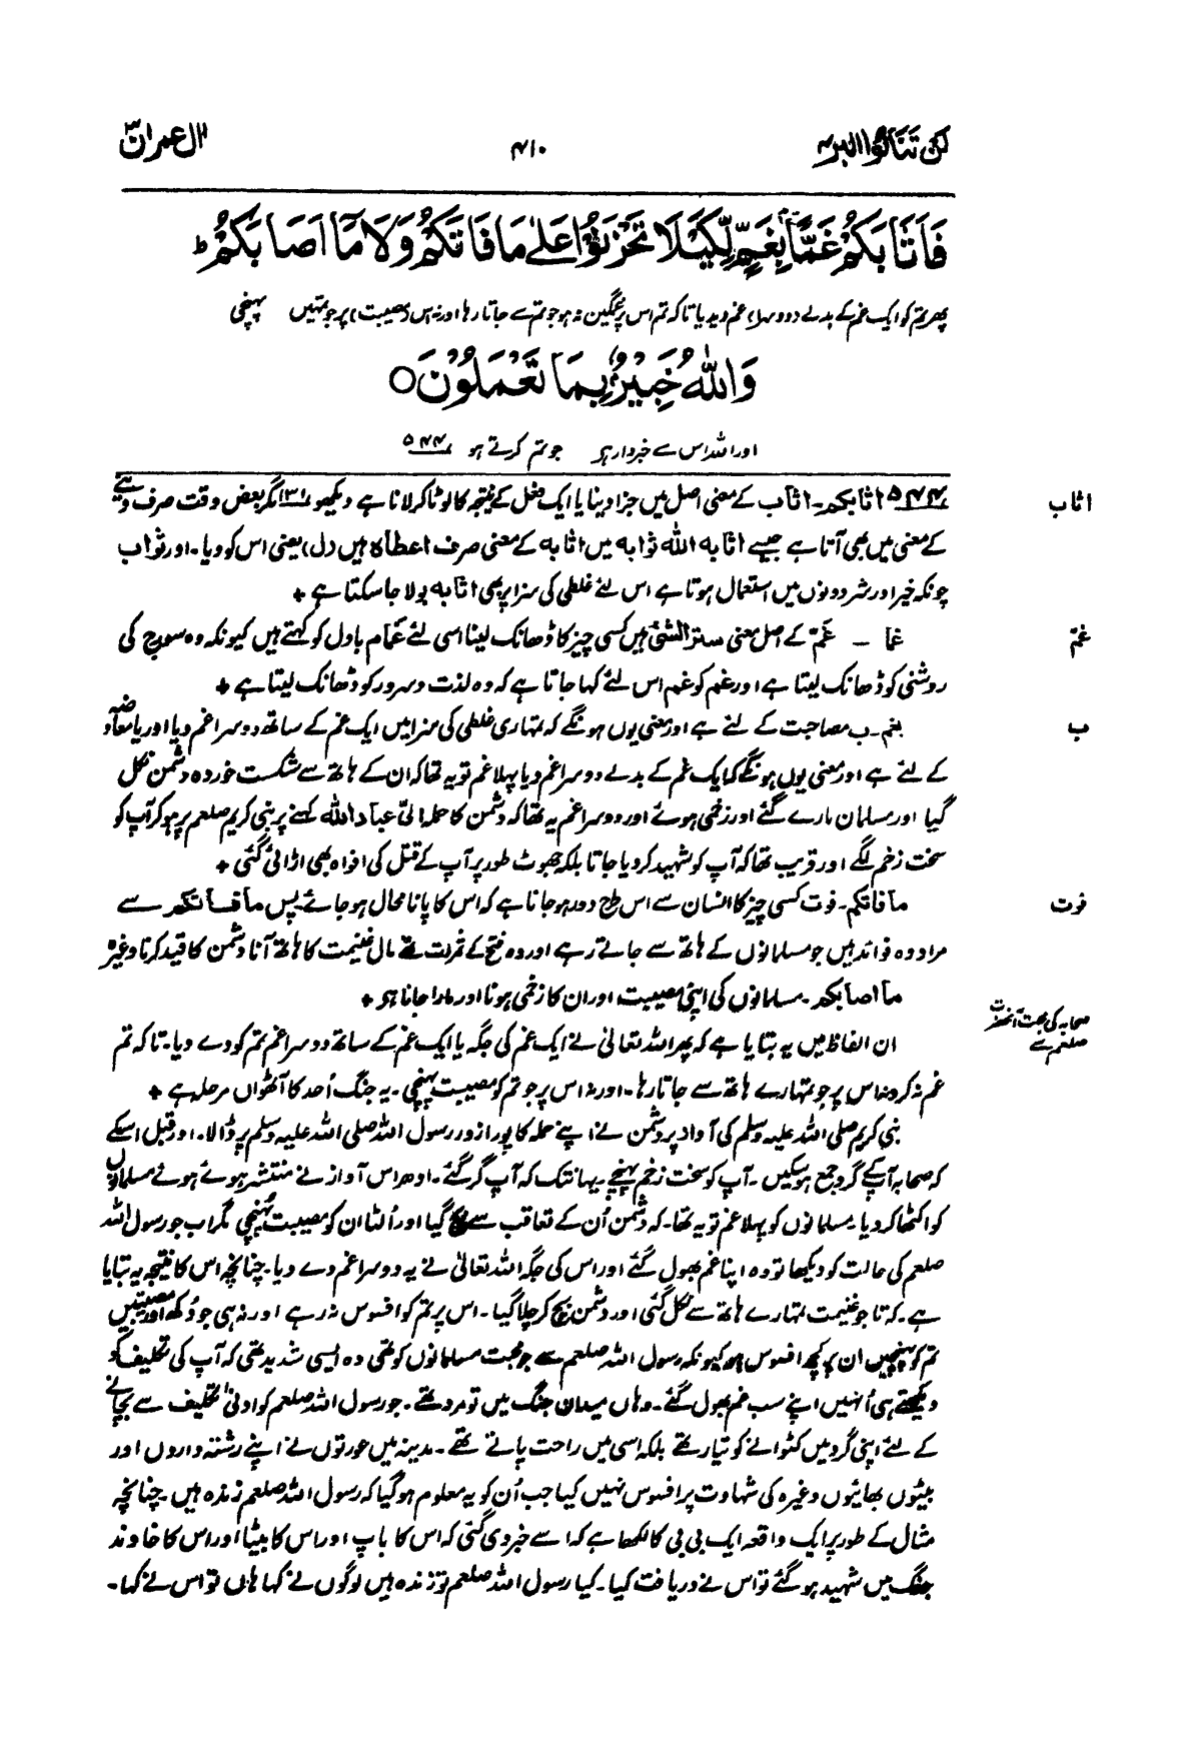 لن تنالوا البر ۴
۴۱۰
اٰل عمران ۳
فَاَثَابَكُمْ غَمًّۢا بِغَمٍّ لِّكَيْلَا تَحْزَنُوْا عَلٰى مَا فَاتَكُمْ وَلَا مَآ اَصَابَكُمْ ؕ
پھر تم کو ایک غم کے بدلے (دوسرا) غم دیدیا تاکہ تم اس پر غمگین نہ ہو جو تم سے جاتا رہا اور نہ اس (مصیبت) پر جو تمہیں پہنچی
وَاللّٰهُ خَبِيْرٌۢ بِمَا تَعْمَلُوْنَ ○
اور اللہ اس سے خبردار ہے جو تم کرتے ہو ۵۴۴
اثاب
۵۴۴ اثابکم۔ اثاب کے معنی اصل میں جزا دینا یا ایک فعل کے نتیجہ کا لوٹا کر لانا ہے دیکھو ۱۳۱ مگر بعض وقت صرف دینے
کے معنی میں بھی آتا ہے جیسے اثابہ اللہ ثوابہ میں اثابہ کے معنی صرف اعطاہ ہیں (ل) یعنی اس کو دیا۔ اور ثواب
چونکہ خیر اور شر دونوں میں استعمال ہوتا ہے اس لئے غلطی کی سزا پر بھی اثابہ بولا جا سکتا ہے ٭
غمّ
غما ۔ غَمّ کے اصل معنی ستر الشئ ہیں کسی چیز کا ڈھانک لینا اسی لئے غَمام بادل کو کہتے ہیں کیونکہ وہ سورج کی
روشنی کو ڈھانک لیتا ہے اور غم کو غم اس لئے کہا جاتا ہے کہ وہ لذت و سرور کو ڈھانک لیتا ہے ٭
ب
بغم۔ ب مصاحبت کے لئے ہے اور معنی یوں ہونگے کہ تمہاری غلطی کی سزا میں ایک غم کے ساتھ دوسرا غم دیا اور یا معاوضہ
کے لئے ہے اور معنی یوں ہونگے کہ ایک غم کے بدلے دوسرا غم دیا پہلا غم تو یہ تھا کہ ان کے ہاتھ سے شکست خوردہ دشمن نکل
گیا اور مسلمان مارے گئے اور زخمی ہوئے اور دوسرا غم یہ تھا کہ دشمن کا حملہ الیّ عباد اللہ کہنے پر نبی کریم صلعم پر ہو کر آپ کو
سخت زخم لگے اور قریب تھا کہ آپ کو شہید کر دیا جاتا بلکہ جھوٹ طور پر آپ کے قتل کی افواہ بھی اڑائی گئی ٭
فوت
ما فاتکم۔ فوت کسی چیز کا انسان سے اس طرح دور ہو جانا ہے کہ اس کا پانا محال ہو جائے پس ما فاتکم سے
مراد وہ فوائد ہیں جو مسلمانوں کے ہاتھ سے جاتے رہے اور وہ فتح کے ثمرات تھے مال غنیمت کا ہاتھ آنا دشمن کا قید کرنا وغیرہ
ما اصابکم۔ مسلمانوں کی اپنی مصیبت اور ان کا زخمی ہونا اور مارا جانا ہے ٭
صحابہ کی محبت آنحضرت
صلعم سے
ان الفاظ میں یہ بتایا ہے کہ پھر اللہ تعالیٰ نے ایک غم کی جگہ یا ایک غم کے ساتھ دوسرا غم تم کو دے دیا۔ تاکہ تم
غم نہ کرو نہ اس پر جو تمہارے ہاتھ سے جاتا رہا۔ اور نہ اس پر جو تم کو مصیبت پہنچی۔ یہ جنگ اُحد کا آٹھواں مرحلہ ہے ٭
نبی کریم صلی اللہ علیہ وسلم کی آواز پر دشمن نے اپنے حملہ کا پورا زور رسول اللہ صلی اللہ علیہ وسلم پر ڈالا۔ اور قبل اسکے
کہ صحابہ آپکے گرد جمع ہو سکیں۔ آپ کو سخت زخم پہنچے۔ یہانتک کہ آپ گر گئے۔ ادھر اس آواز نے منتشر ہوئے ہوئے مسلمانوں
کو اکٹھا کر دیا۔ مسلمانوں کو پہلا غم تو یہ تھا۔ کہ دشمن اُن کے تعاقب سے بچ گیا اور اُلٹا ان کو مصیبت پہنچی مگر اب جو رسول اللہ
صلعم کی حالت کو دیکھا تو وہ اپنا غم بھول گئے اور اس کی جگہ اللہ تعالیٰ نے یہ دوسرا غم دے دیا۔ چنانچہ اس کا نتیجہ یہ بتایا
ہے۔ کہ تا جو غنیمت تمہارے ہاتھ سے نکل گئی اور دشمن بچ کر چلا گیا۔ اس پر تم کو افسوس نہ رہے اور نہ ہی جو دُکھ اور مصیبتیں
تم کو پہنچیں ان پر کچھ افسوس ہو کیونکہ رسول اللہ صلعم سے جو محبت مسلمانوں کو تھی وہ ایسی شدید تھی کہ آپ کی تکلیف کو
دیکھتے ہی اُنہیں اپنے سب غم بھول گئے۔ وہاں میدان جنگ میں تو مرد تھے۔ جو رسول اللہ صلعم کو ادنیٰ تکلیف سے بچانے
کے لئے اپنی گردنیں کٹوانے کو تیار تھے بلکہ اسی میں راحت پاتے تھے۔ مدینہ میں عورتوں نے اپنے رشتہ داروں اور
بیٹوں بھائیوں وغیرہ کی شہادت پر افسوس نہیں کیا جب اُن کو یہ معلوم ہو گیا کہ رسول اللہ صلعم زندہ ہیں۔ چنانچہ
مثال کے طور پر ایک واقعہ ایک بی بی کا لکھا ہے کہ اسے خبر دی گئی کہ اس کا باپ اور اس کا بیٹا اور اس کا خاوند
جنگ میں شہید ہو گئے تو اس نے دریافت کیا۔ کیا رسول اللہ صلعم تو زندہ ہیں لوگوں نے کہا ہاں تو اس نے کہا۔